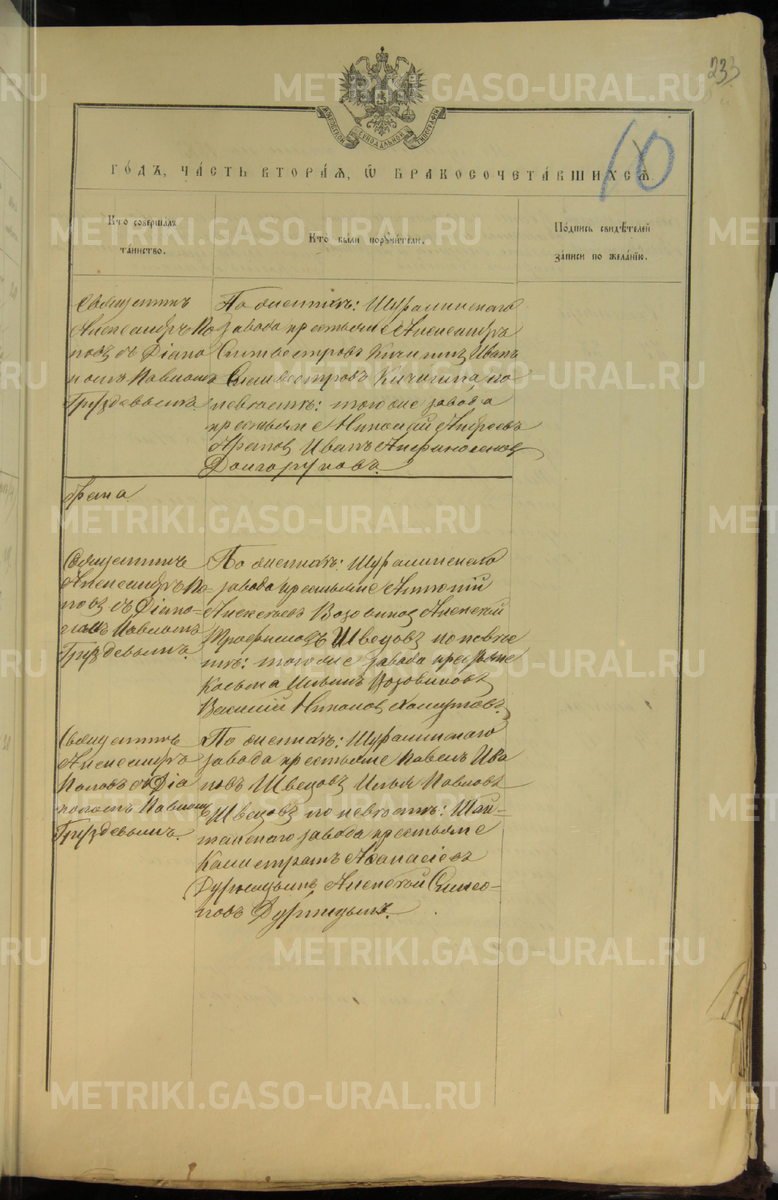 233
10
МОСКОВСКОЙ СѴНОДАЛЬНОЙ ТИПОГРАФІИ
ГО́ДЪ, ЧА́СТЬ ВТОРА́Я, Ѡ БРАКОСОЧЕТА́ВШИХСЯ
Кто совершалъ
та́инство.
Кто были поручи́тели.
Подпись свидѣ́телей
за́писи по жела́нію.
Священникъ
Александръ По
повъ съ Діако
номъ Павломъ
Груздевымъ
По женихѣ: Шуралинскаго
завода крестьяне Александръ
Сильвестровъ Кичигинъ Иванъ
Сильвестровъ Кичигинъ, по
невѣстѣ: того же завода
крестьяне Николай Андреевъ
Араповъ Иванъ
Долгоруковъ.
брака
Священникъ
Александръ По-
повъ съ Діако-
номъ Павломъ
Груздевымъ.
По женихѣ: Шуралинскаго
завода крестьяне Антоній
Алексѣевъ Возовиковъ Алексѣй
Трофимовъ Швецовъ по невѣс
тѣ: того же завода крестьяне
Косьма Ильинъ Возовиковъ
Василій Хомутовъ.
Священникъ
Александръ
Поповъ съ Діа
кономъ Павломъ
Груздевымъ.
По женихѣ: Шуралинскаго
завода крестьяне Павелъ Ива
новъ Швецовъ Илья Павловъ
Швецовъ по невѣстѣ: Шай-
танскаго завода крестьяне
Калистратъ Аѳанасіевъ
Алексѣй Симео-
новъ
METRIKI.GASO-URAL.RU